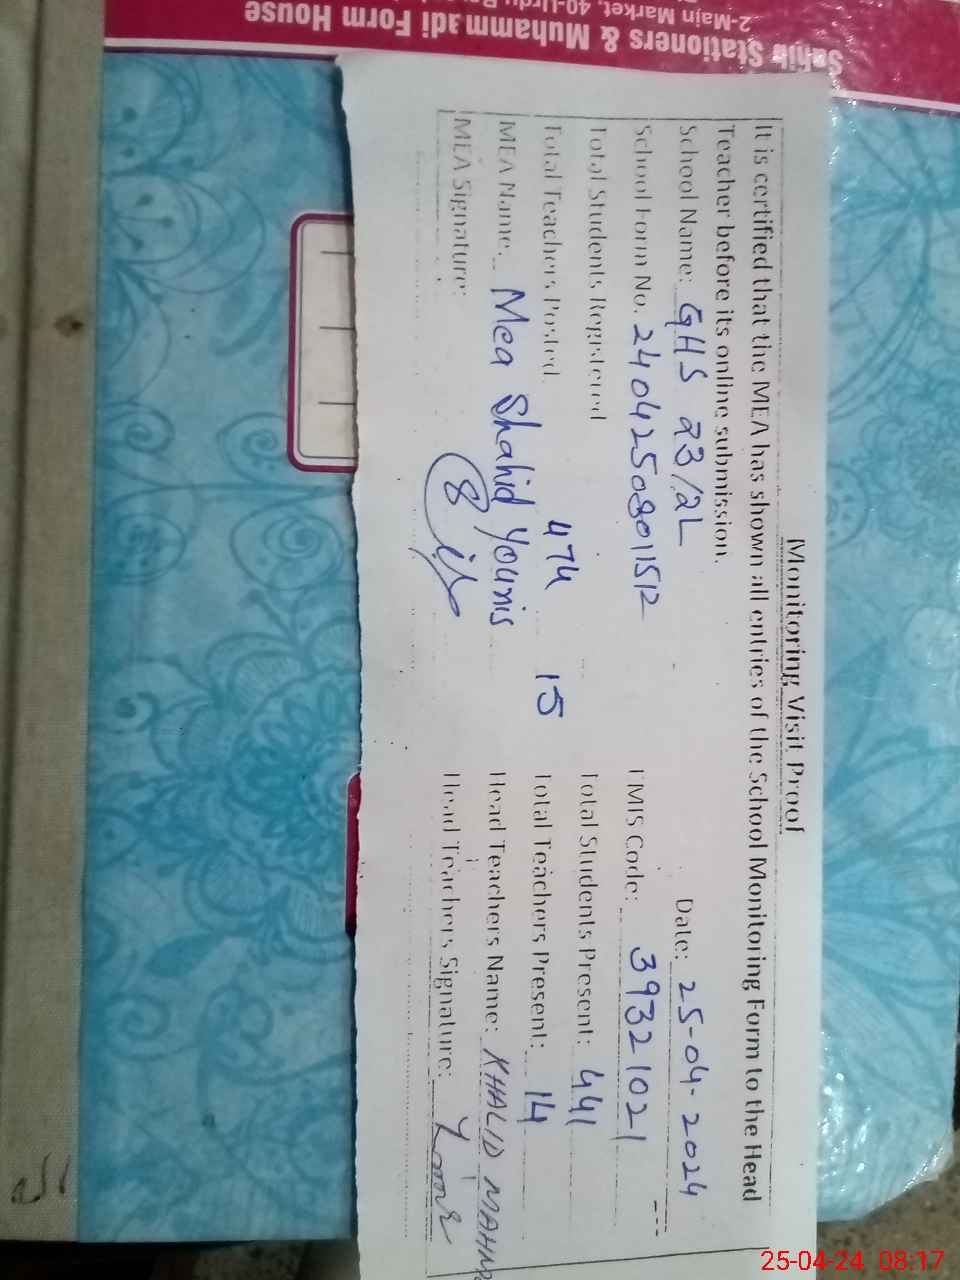 Sahib Stationers & Muhammadi Form House
2-Main Market, 40-Urdu
Monitoring Visit Proof
It is certified that the MEA has shown all entries of the School Monitoring Form to the Head
Teacher before its online submission.
School Name: GHS 23/2L Date: 25-04-2024
School Form No. 24042508011512 EMIS Code: 39321021
Total Students Registered 474 Total Students Present: 441
Total Teachers Posted. 15 Total Teachers Present: 14
MEA Name. Mea Shahid Younis Head Teachers Name: KHALID MAHM
MEA Signature: Head Teachers Signature:
25-04-24 08:17